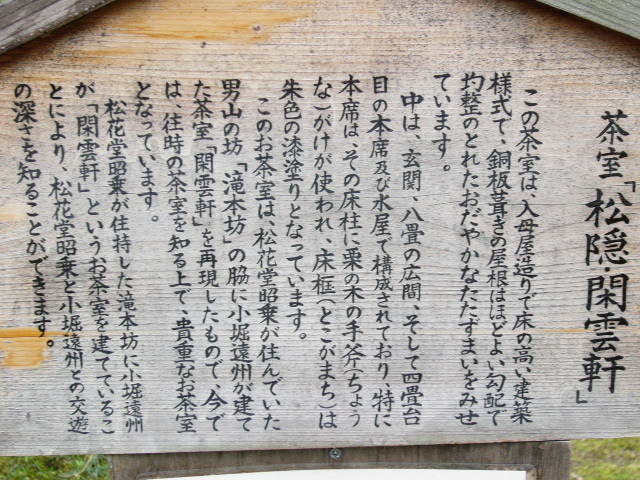 茶室「松隠・閑雲軒」
この茶室は、入母屋造りで床の高い建築
様式で、銅板葺きの屋根はほどよい勾配で
均整のとれたおだやかなたたずまいをみせ
ています。
中は、玄関、八畳の広間、そして四畳台
目の本席及び水屋で構成されており、特に
本席は、その床柱に栗の木の手斧(ちょう
な)がけが使われ、床框(とこがまち)は
朱色の漆塗りとなっています。
このお茶室は、松花堂昭乗が住んでいた
男山の坊「滝本坊」の脇に小堀遠州が建て
た茶室「閑雲軒」を再現したもので、今で
は、往時の茶室を知る上で、貴重なお茶室
となっています。
松花堂昭乗が住持した滝本坊に小堀遠州
が「閑雲軒」というお茶室を建てているこ
とにより、松花堂昭乗と小堀遠州との交遊
の深さを知ることができます。